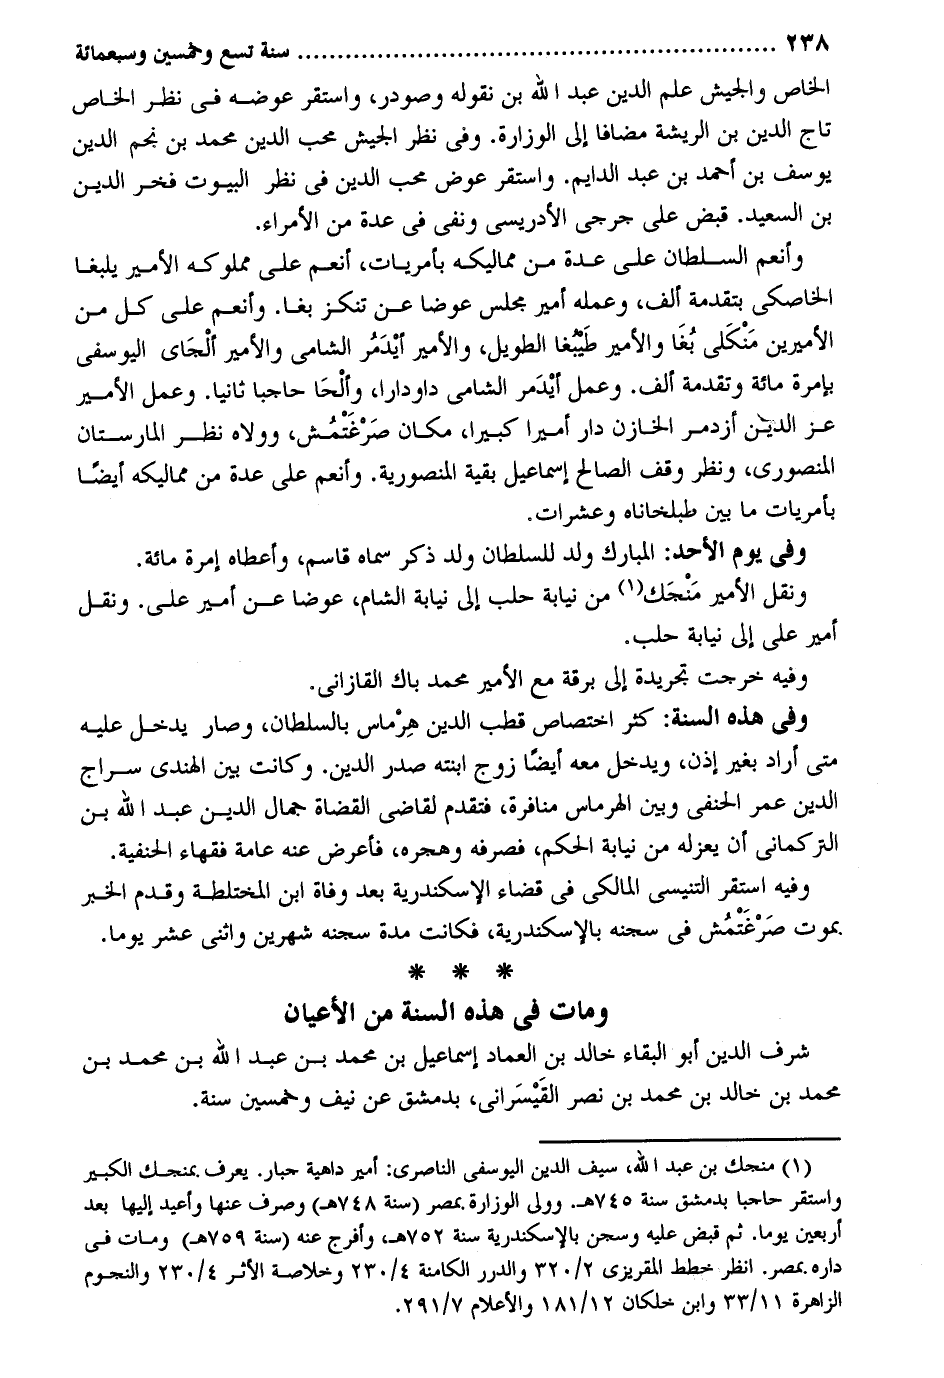 ٢٣٨ ................................................................ سنة تسع وخمسين وسبعمائة
الخاص والجيش علم الدين عبد الله بن نقوله وصودر، واستقر عوضه فى نظر الخاص
تاج الدين بن الريشة مضافا إلى الوزارة. وفى نظر الجيش محب الدين محمد بن نجم الدين
يوسف بن أحمد بن عبد الدايم. واستقر عوض محب الدين فى نظر البيوت فخر الدين
بن السعيد. قبض على جرجى الأدريسى ونفى فى عدة من الأمراء.
وأنعم السلطان على عدة من مماليكه بأمريات، أنعم على مملوكه الأمير يلبغا
الخاصكى بتقدمة ألف، وعمله أمير مجلس عوضا عن تنكز بغا. وأنعم على كل من
الأميرين مَنْكَلى بُغَا والأمير طَيْبُغا الطويل، والأمير أيْدَمُر الشامى والأمير ألْجَاى اليوسفى
بإمرة مائة وتقدمة ألف. وعمل أيْدَمر الشامى داودارا، وألْحَا حاجبا ثانيا. وعمل الأمير
عز الدين أزدمر الخازن دار أميرا كبيرا، مكان صَرْغَتْمُش، وولاه نظر المارستان
المنصورى، ونظر وقف الصالح إسماعيل بقية المنصورية. وأنعم على عدة من مماليكه أيضًا
بأمريات ما بين طبلخاناه وعشرات.
وفى يوم الأحد: المبارك ولد للسلطان ولد ذكر سماه قاسم، وأعطاه إمرة مائة.
ونقل الأمير مَنْجَك(١) من نيابة حلب إلى نيابة الشام، عوضا عن أمير على. ونقل
أمير على إلى نيابة حلب.
وفيه خرجت تجريدة إلى برقة مع الأمير محمد باك القازانى.
وفى هذه السنة: كثر اختصاص قطب الدين هِرْماس بالسلطان، وصار يدخل عليه
متى أراد بغير إذن، ويدخل معه أيضًا زوج ابنته صدر الدين. وكانت بين الهندى سراج
الدين عمر الحنفى وبين الهرماس منافرة، فتقدم لقاضى القضاة جمال الدين عبد الله بن
التركمانى أن يعزله من نيابة الحكم، فصرفه وهجره، فأعرض عنه عامة فقهاء الحنفية.
وفيه استقر التنيسى المالكى فى قضاء الإسكندرية بعد وفاة ابن المختلطة وقدم الخبر
بموت صَرْغَتْمُش فى سجنه بالإسكندرية، فكانت مدة سجنه شهرين واثنى عشر يوما.
* * *
ومات فى هذه السنة من الأعيان
شرف الدين أبو البقاء خالد بن العماد إسماعيل بن محمد بن عبد الله بن محمد بن
محمد بن خالد بن محمد بن نصر القَيْسَرانى، بدمشق عن نيف وخمسين سنة.
(١) منجك بن عبد الله، سيف الدين اليوسفى الناصرى: أمير داهية جبار. يعرف بمنجك الكبير
واستقر حاجبا بدمشق سنة ٧٤٥هـ. وولى الوزارة بمصر (سنة ٧٤٨هـ) وصرف عنها وأعيد إليها بعد
أربعين يوما. ثم قبض عليه وسجن بالإسكندرية سنة ٧٥٢هـ، وأفرج عنه (سنة ٧٥٩هـ) ومات فى
داره بمصر. انظر خطط المقريزى ٣٢٠/٢ والدرر الكامنة ٢٣٠/٤ وخلاصة الأثر ٢٣٠/٤ والنجوم
الزاهرة ٣٣/١١ وابن خلكان ١٨١/١٢ والأعلام ٢٩١/٧.